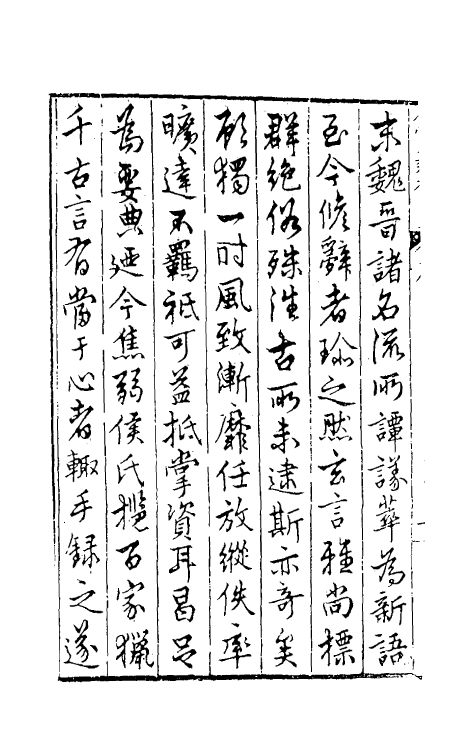 末魏晉諸名流所譚議蕐為新語
至今脩辭者珍之然玄言雅尚標
群絶俗殊淮古所未逮斯亦奇矣
顧獨一時風致漸靡任放縱佚率
曠達不羈祇可益抵掌資耳曷足
為要典廼今焦弱侯氏攬百家獵
千古言有當于心者輙手録之遂